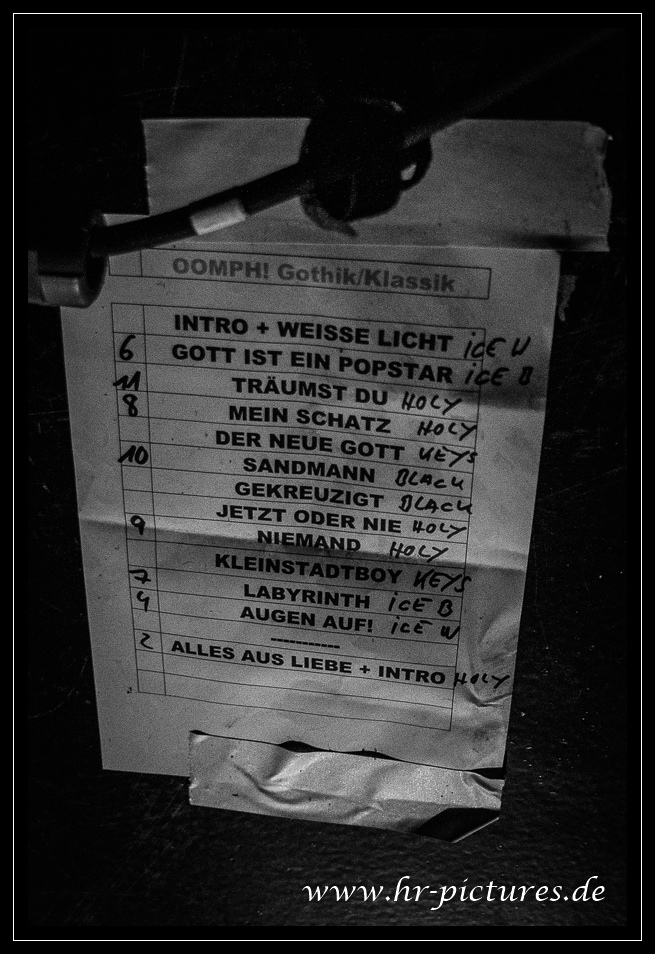 OOMPH! Gothik/Klassik
INTRO + WEISSE LICHT iCE W
6 GOTT IST EIN POPSTAR iCE B
11 TRÄUMST DU HOLY
8 MEIN SCHATZ HOLY
DER NEUE GOTT KEYS
10 SANDMANN BLACK
GEKREUZIGT BLACK
JETZT ODER NIE HOLY
9 NIEMAND HOLY
KLEINSTADTBOY KEYS
7 LABYRINTH iCE B
4 AUGEN AUF! iCE W
-----------
2 ALLES AUS LIEBE + INTRO HOLY
www.hr-pictures.de